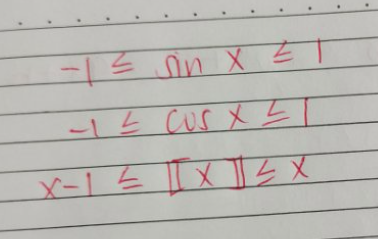 -1 ≤ sin x ≤ 1
-1 ≤ cos x ≤ 1
x-1 ≤ ⟦x⟧ ≤ x